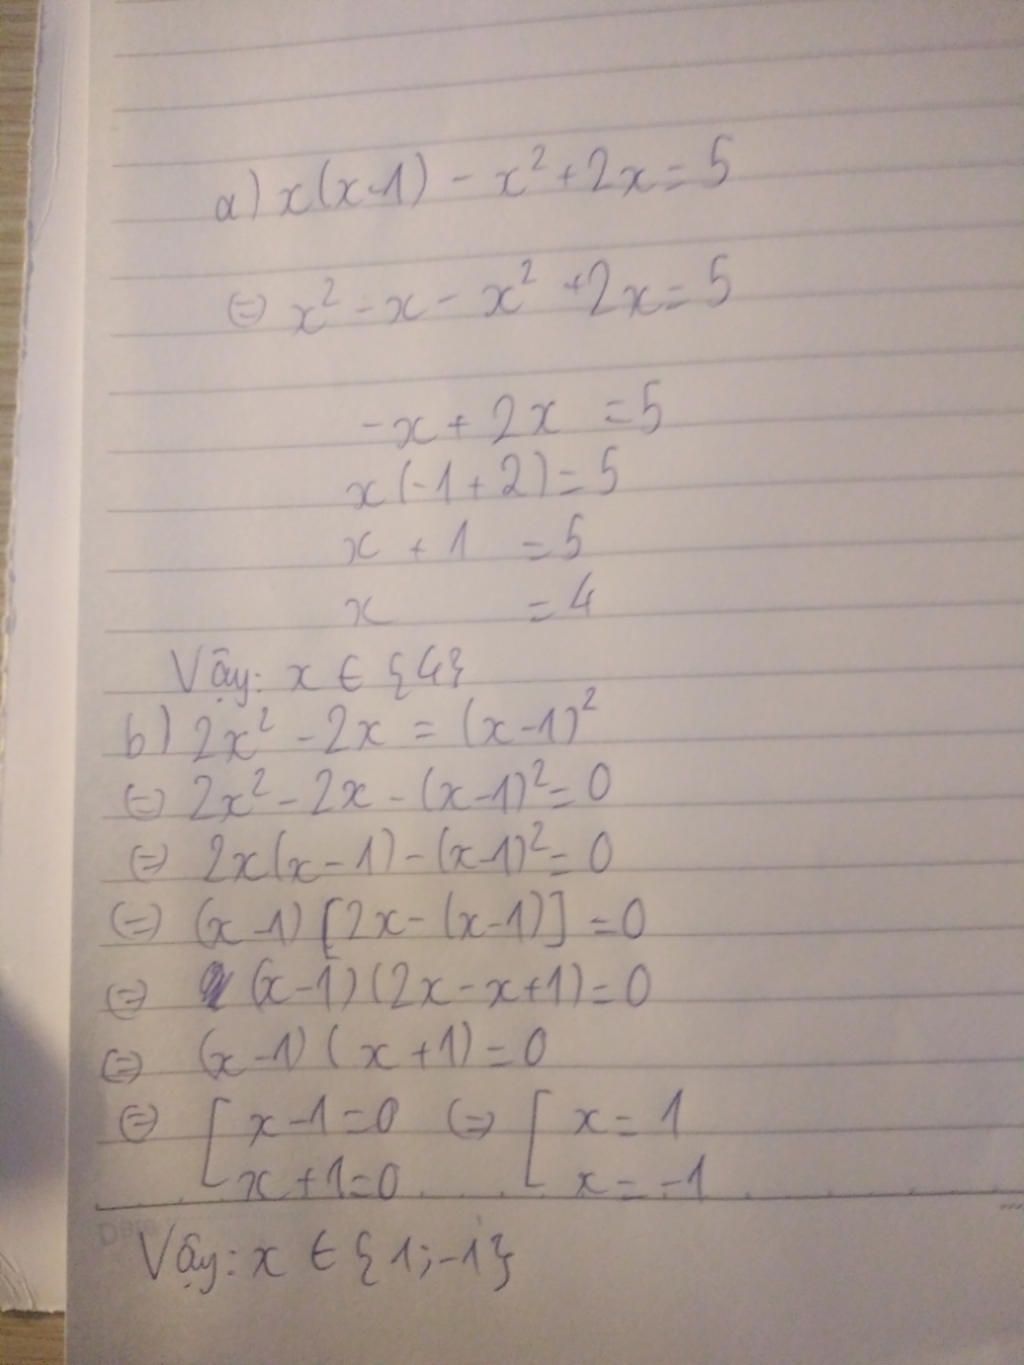 a) x(x-1) - x² + 2x = 5
(=) x² - x - x² + 2x = 5
-x + 2x = 5
x(-1 + 2) = 5
x + 1 = 5
x = 4
Vậy: x ∈ {4}
b) 2x² - 2x = (x-1)²
(=) 2x² - 2x - (x-1)² = 0
(=) 2x(x-1) - (x-1)² = 0
(=) (x-1) [2x - (x-1)] = 0
(=) (x-1)(2x - x + 1) = 0
(=) (x-1)(x+1) = 0
(=) [ x-1=0 (=) [ x = 1
x+1=0 x = -1
Date
Vậy: x ∈ {1; -1}